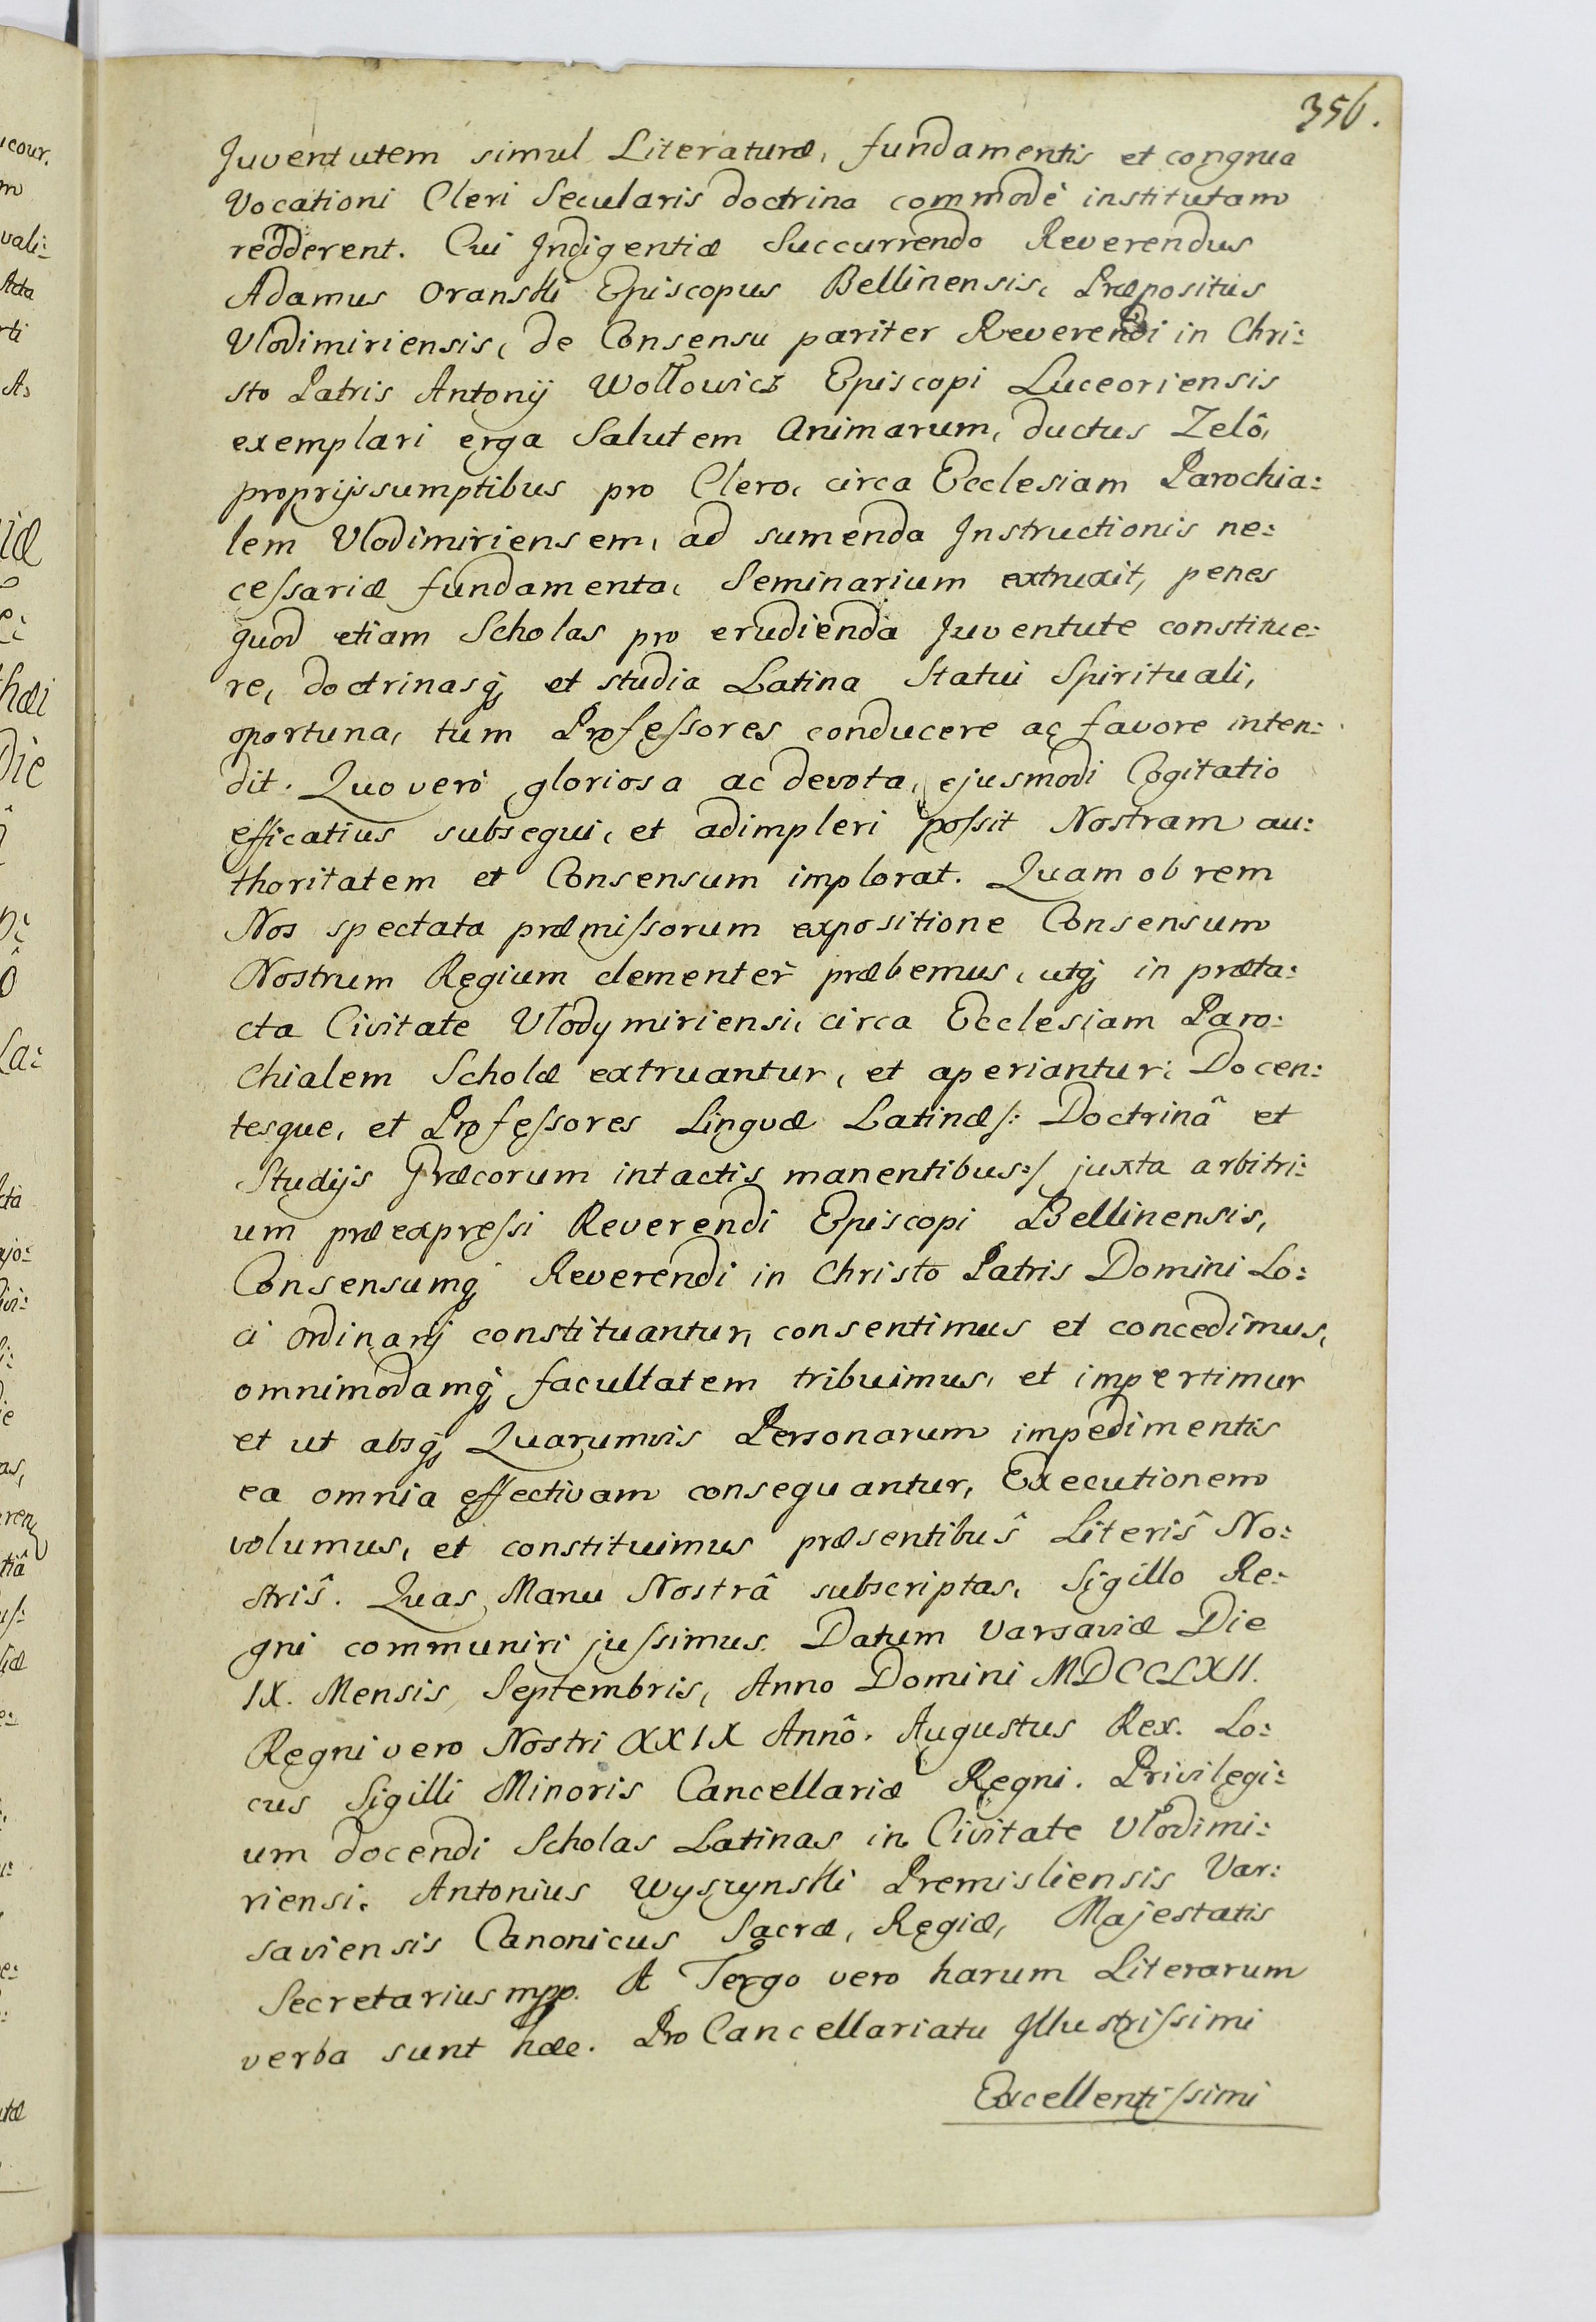 356.
Juventutem simul Literaturæ, fundamentis et congrua
Vocationi Cleri Secularis doctrina commodè institutam
redderent. Cui Indigentiæ Succurrendo Reverendus
Adamus Oranski Episcopus Bellinensis, Præpositus
Vlodimiriensis, de Consensu pariter Reverendi in Chri:
sto Patris Antonij Wołłowicz Episcopi Luceoriensis
exemplari erga Salutem Animarum, ductus Zelô,
proprijs sumptibus pro Clero, circa Ecclesiam Parochia:
lem Vlodimiriensem, ad sumenda Instructionis ne:
cessariæ fundamenta, Seminarium extruxit, penes
quod etiam Scholas pro erudienda Juventute constitue:
re, doctrinasq; et studia Latina Statui Spirituali,
oportuna, tum Professores conducere ac favore inten:
dit. Quo verò gloriosa ac devota, ejusmodi Cogitatio
efficatius subsequi, et adimpleri possit Nostram au:
thoritatem et Consensum implorat. Quam ob rem
Nos spectata præmissorum expositione Consensum
Nostrum Regium clementèr præbemus, utq; in præta:
cta Civitate Vlodymiriensi, circa Ecclesiam Paro:
chialem Scholæ extruantur, et aperiantur, Docen:
tesque, et Professores Linguæ Latinæ /: Doctrinâ et
Studijs Græcorum intactis manentibus :/ juxta arbitri:
um præexpressi Reverendi Episcopi Bellinensis,
Consensumq; Reverendi in Christo Patris Domini Lo:
ci Ordinarij constituantur, consentimus et concedimus,
omnimodamq; facultatem tribuimus, et impertimur
et ut absq; Quarumvis Personarum impedimentis
ea omnia effectivam consequantur, Executionem
volumus, et constituimus præsentibuŝ Literiŝ No:
striŝ. Quas Manu Nostrâ subscriptas, Sigillo Re:
gni communiri jussimus. Datum Varsaviæ Die
IX. Mensis Septembris, Anno Domini MDCCLXII.
Regni vero Nostri XXIX Annô. Augustus Rex. Lo:
cus Sigilli Minoris Cancellariæ Regni. Privilegi:
um docendi Scholas Latinas in Civitate Vlodimi:
riensi. Antonius Wyszynski Premisliensis Var:
saviensis Canonicus Sacræ, Regiæ, Majestatis
Secretarius mpp. A Tergo vero harum Literarum
verba sunt hæc. Pro Cancellariatu Illustrissimi
Excellentissimi